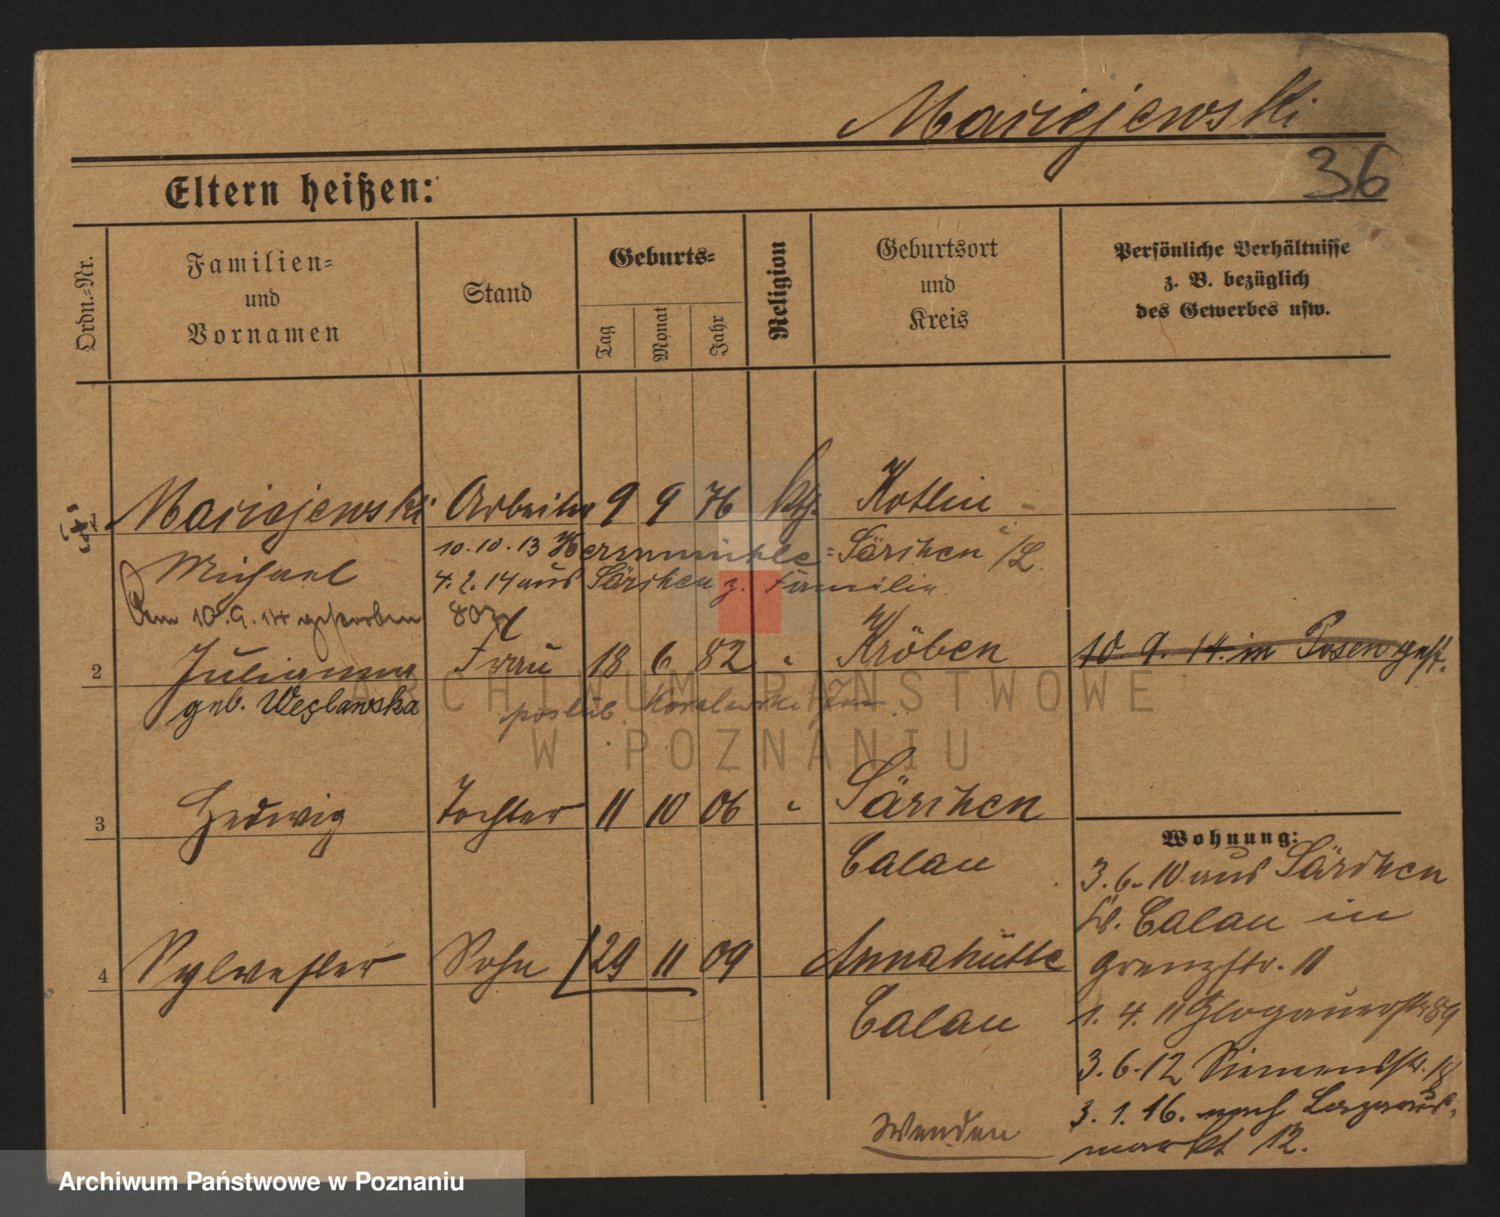 Mariejewski
36
Eltern heißen:
Ordn.-Nr.
Familien-
und
Vornamen
Stand
Geburts-
Tag
Monat
Jahr
Religion
Geburtsort
und
Kreis
Persönliche Verhältnisse
z. B. bezüglich
des Gewerbes usw.
1 Mariejewski Arbeiter 9 9 76 kth. Kotlin
Michael
10.10.13 Herrnmühle-Särchen /L.
4.2.14 aus Särchen z. Familie
Am 10.9.14 gestorben
2 Julianna Frau 18 6 82 " Kröben 10 9. 14. in Posen gest.
geb. Węslawska
poslub.
3 Hedwig Tochter 11 10 06 " Särchen
Calau
4 Sylvester Sohn 29 11 09 Annahütte
Calau
Wohnung:
3.6.10 aus Särchen
Kr. Calau in
Grenzstr. 11
1. 4. 11 Glogauerstr 89
3.6.12 Siemensstr. 18
3. 1. 16. nach Lazarus-
markt 12.
Wenden
ARCHIWUM PAŃSTWOWE
W POZNANIU
Archiwum Państwowe w Poznaniu